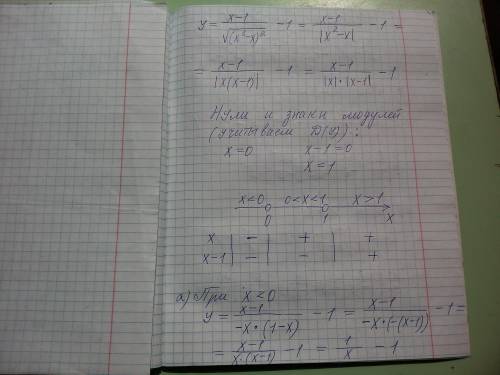 y = \frac{x-1}{\sqrt{(x²-x)²}} - 1 = \frac{x-1}{|x²-x|} - 1 =
= \frac{x-1}{|x(x-1)|} - 1 = \frac{x-1}{|x|·|x-1|} - 1
Нули и знаки модулей
(учитываем D(y)):
x=0 x-1=0
x=1
x<0 0<x<1 x>1
0 1 x
x | - | + | +
x-1 | - | - | +
а) При x<0
y = \frac{x-1}{-x·(1-x)} - 1 = \frac{x-1}{-x·(-(x-1))} - 1 =
= \frac{x-1}{x·(x-1)} - 1 = \frac{1}{x} - 1